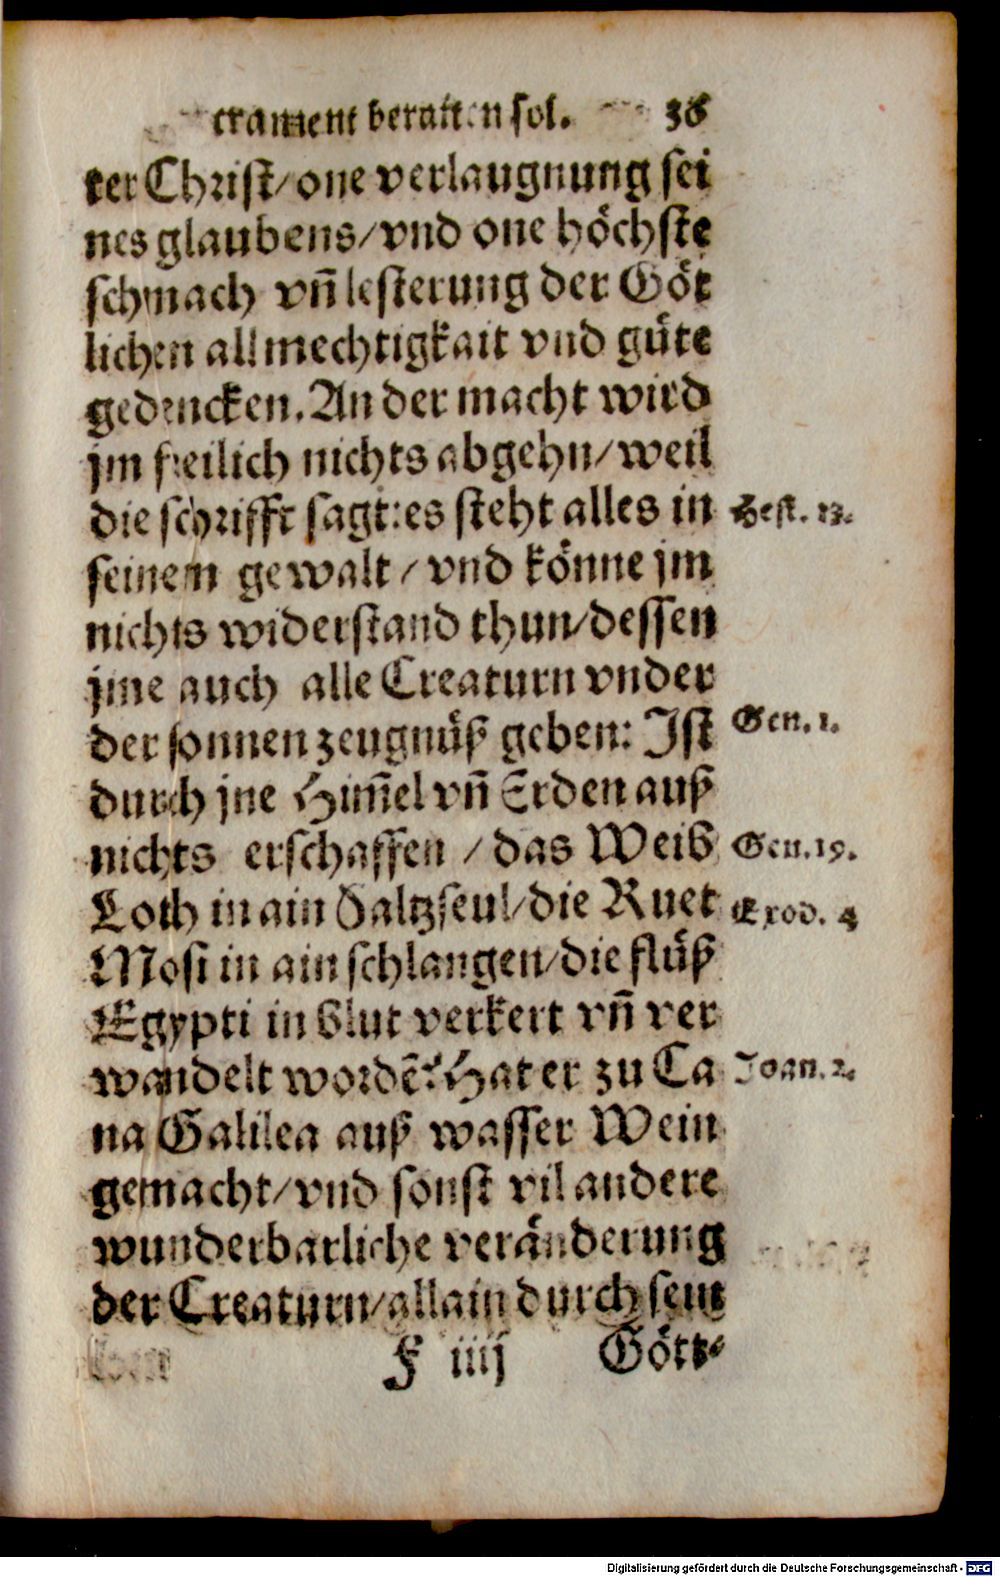 crament beraiten sol. 36
ter Christ/ one verlaugnung sei
nes glaubens/ vnd one höchste
schmach vn̄ lesterung der Göt
lichen allmechtigkait vnd güte
gedencken. An der macht wird
jm freilich nichts abgehn/ weil
die schrifft sagt: es steht alles in
Hest. 13.
seinem gewalt / vnd könne jm
nichts widerstand thun/ dessen
jme auch alle Creaturn vnder
der sonnen zeugnüß geben: Ist
Gen. 1.
durch jne Him̄el vn̄ Erden auß
nichts erschaffen / das Weib
Gen. 19.
Loth in ain Saltzseul/ die Ruet
Exod. 4
Mosi in ain schlangen/ die flüß
Egypti in blut verkert vn̄ ver
wandelt wordē? Hat er zu Ca
Joan. 2.
na Galilea auß wasser Wein
gemacht/ vnd sonst vil andere
wunderbarliche veränderung
der Creaturn/ allain durch sein
F iiij Gött-
Digitalisierung gefördert durch die Deutsche Forschungsgemeinschaft - DFG